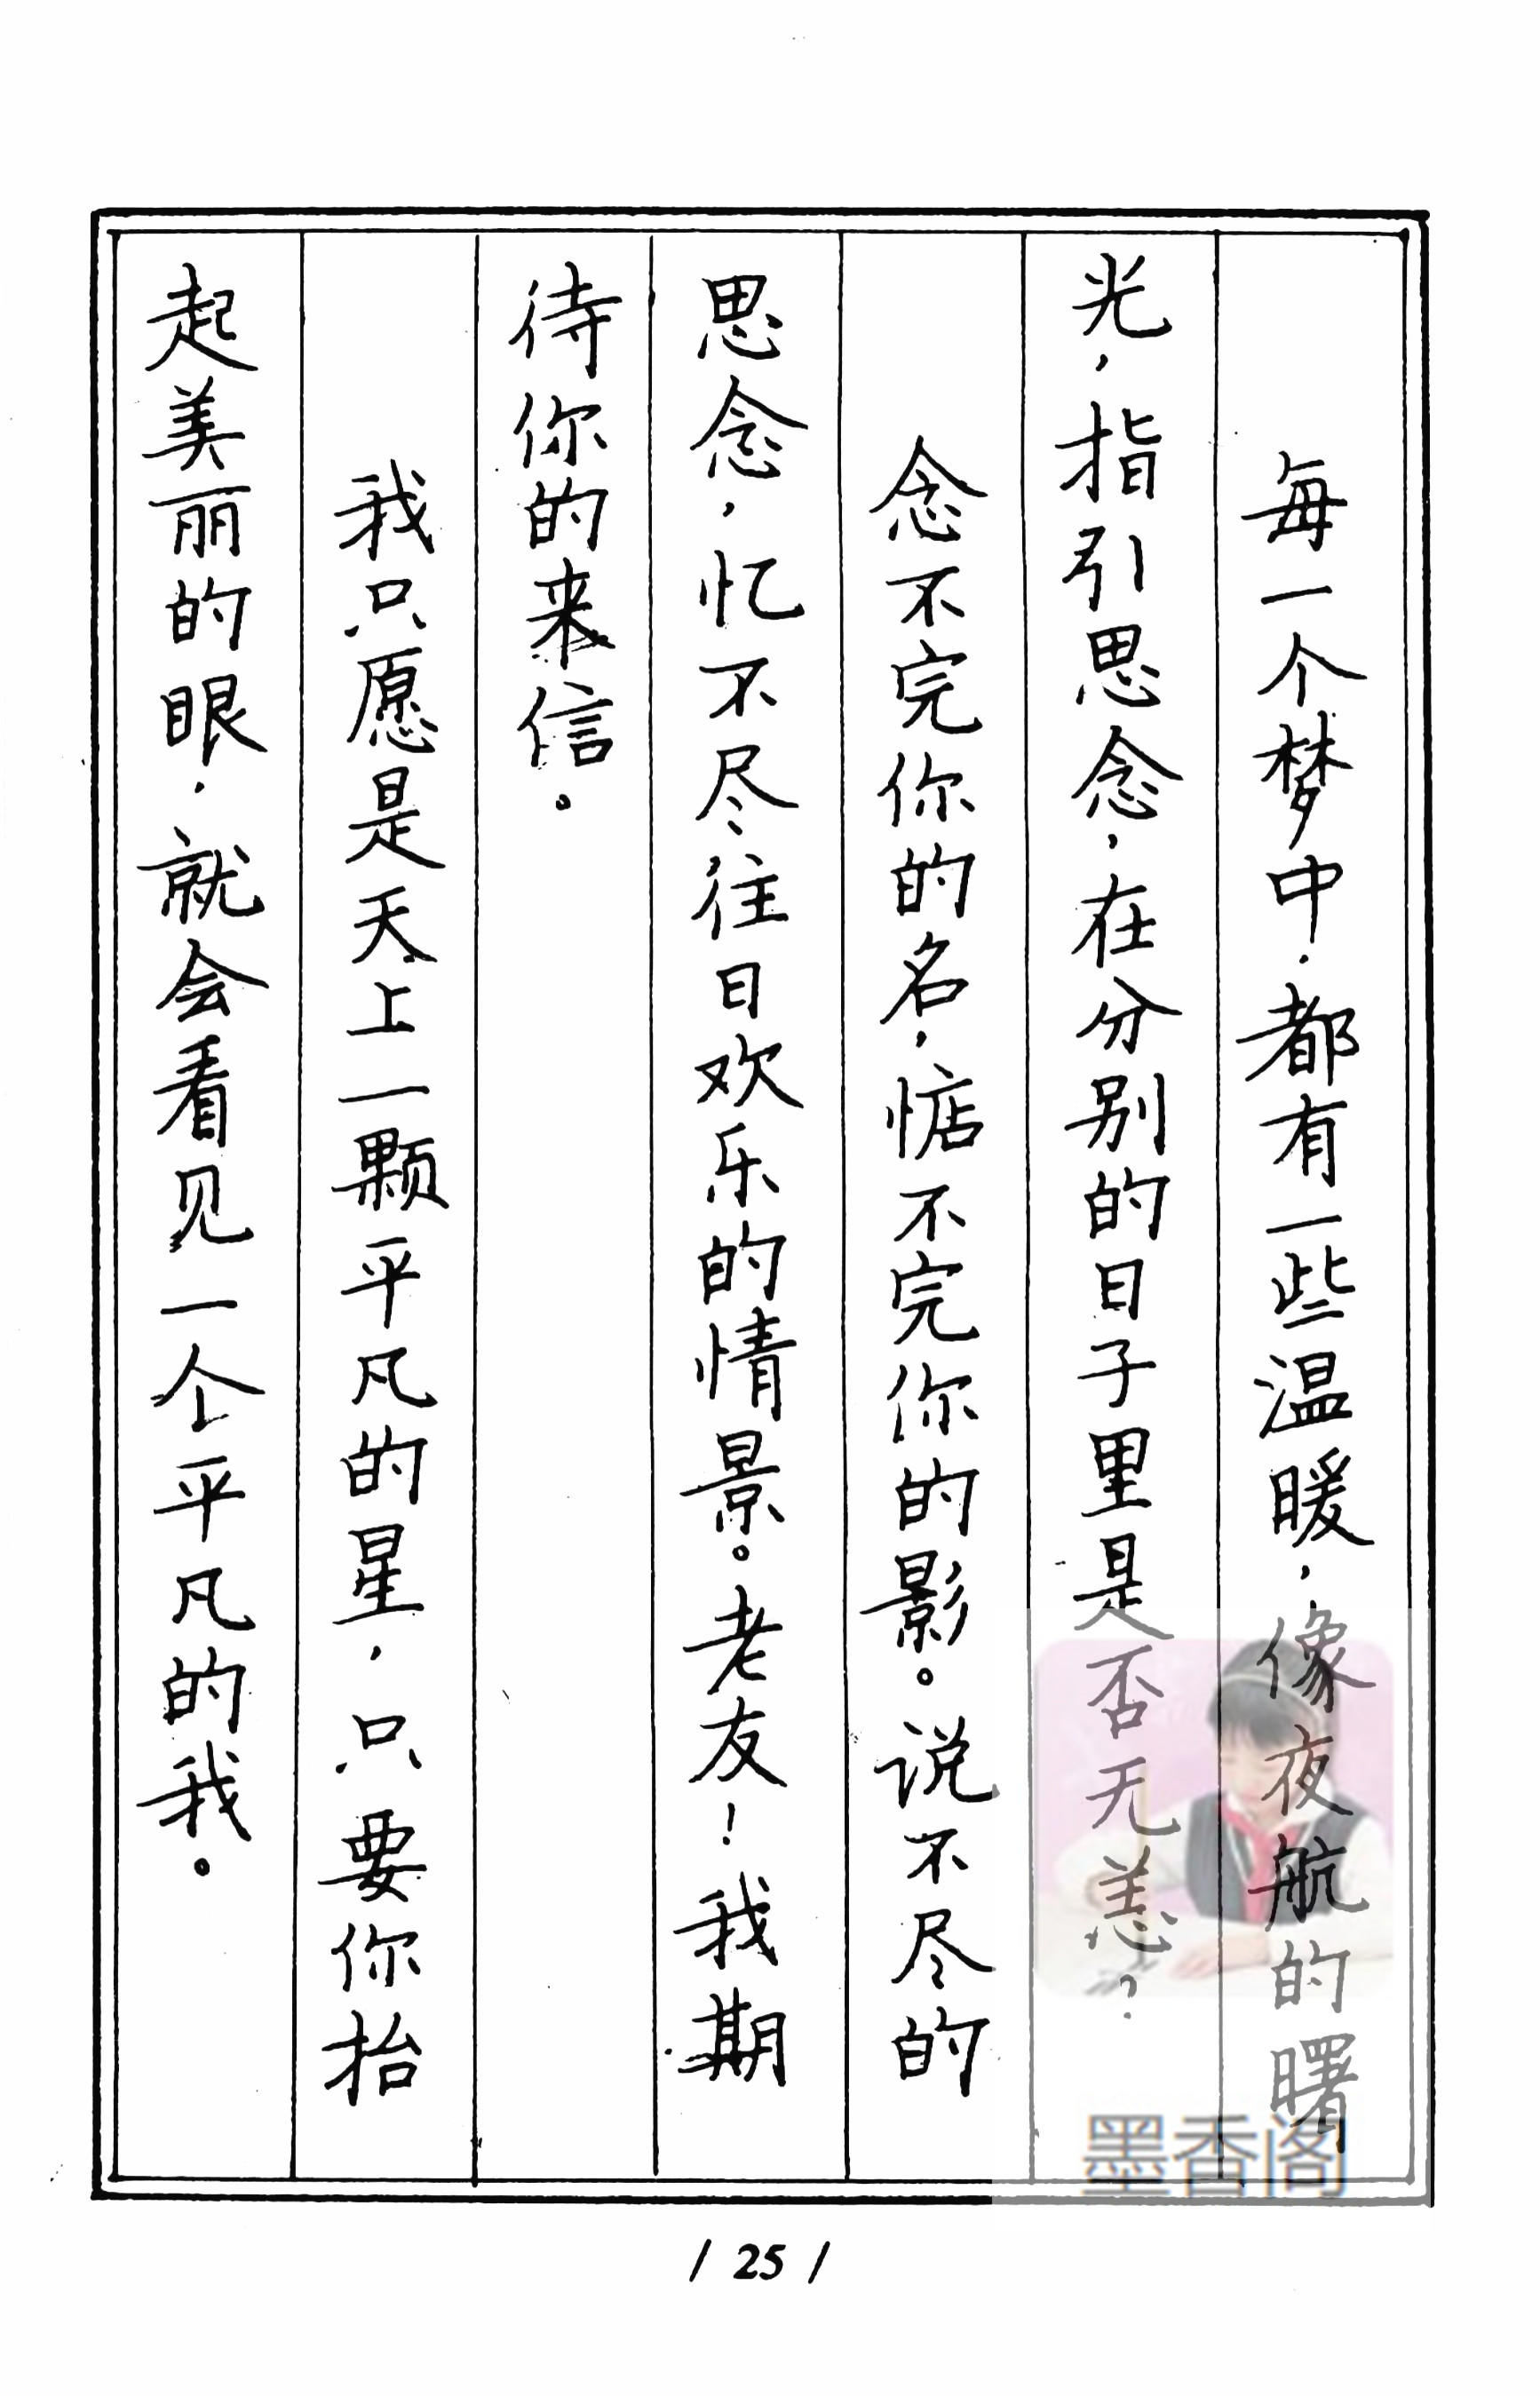 每一个梦中，都有一些温暖，像夜航的曙
光，指引思念，在分别的日子里是否无恙？
念不完你的名，惦不完你的影。说不尽的
思念，忆不尽往日欢乐的情景。老友！我期
待你的来信。
我只愿是天上一颗平凡的星，只要你抬
起美丽的眼，就会看见一个平凡的我。
墨香阁
/ 25 /